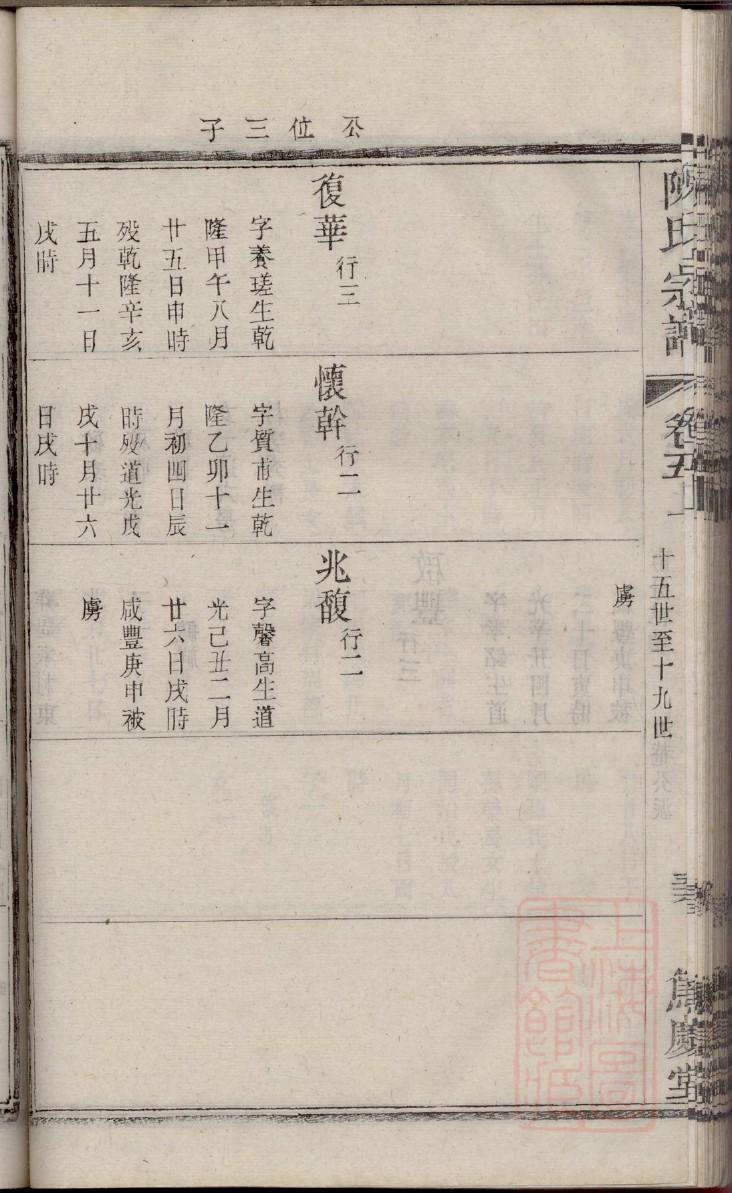 陳氏宗譜
卷五上
十五世至十九世
雋慶堂
公位三子
復華行三
字養瑳生乾
隆甲午八月
廿五日申時
歿乾隆辛亥
五月十一日
戌時
懷幹行二
字質甫生乾
隆乙卯十一
月初四日辰
時歿道光戊
戌十月廿六
日戌時
虜
兆馥行二
字馨高生道
光己丑二月
廿六日戌時
咸豐庚申被
虜
上海圖書館藏